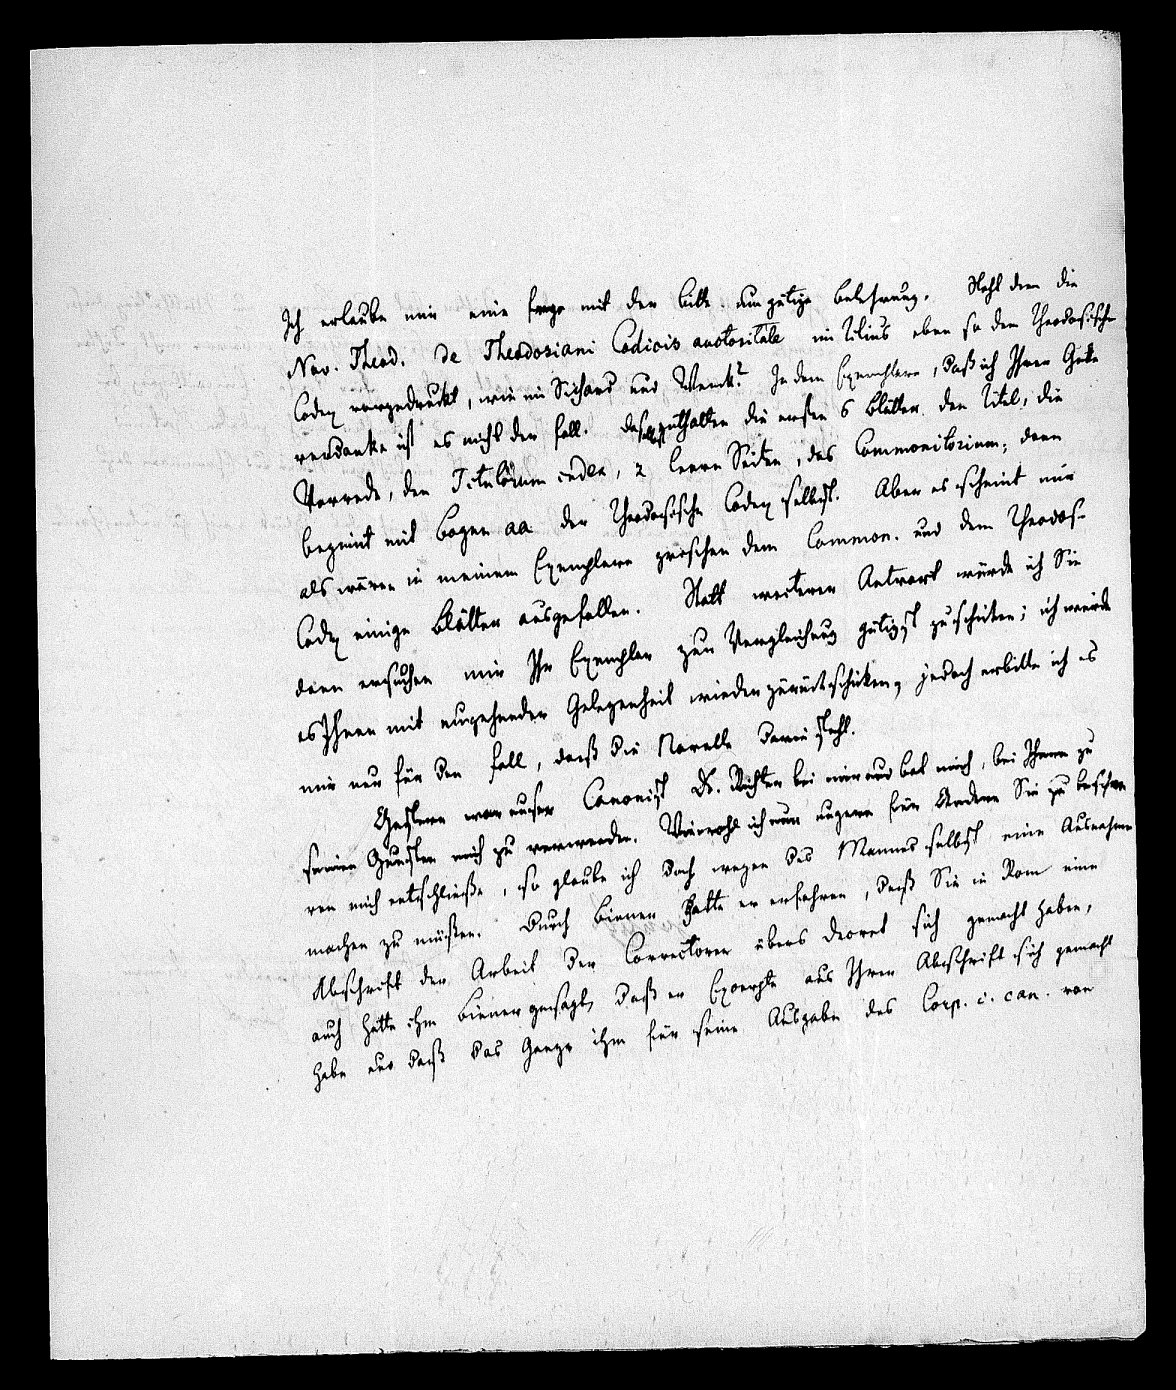 Ich erlaube mir eine frage mit der bitte um gütige belehrung. Steht denn die
Nov. Theod. de Theodosiani Codicis auctoritate im Tilius eben so dem Theodosischen
Codex vorgedruckt, wie im Sichard und Wenck? In dem Exemplare, daß ich Ihrer Güte
verdanke ist es nicht der fall. enthalten die ersten 6 blätter den Titel, die
Vorrede, den Titulorum index, 2 leere Seiten, das Commonitorium; dann
beginnt mit bogen aa der Theodosische Codex selbst. Aber es scheint mir
als wären in meinem Exemplare zwischen dem Common. und dem Theodos.
Codex einige blätter ausgefallen. Statt weiterer Antwort würde ich Sie
dann ersuchen mir Ihr Exemplar zur Vergleichung gütigst zu schicken; ich werde
es Ihnen mit umgehender Gelegenheit wieder zurückschicken, jedoch erbitte ich es
mir nur für den fall, daß die Novelle darin steht.
Gestern war unser Canonist Dr. Richter bei mir und bat mich, bei Ihnen zu
seinen Gunsten mich zu verwenden. Wiewohl ich nun ungern für Andere Sie zu beschwe
ren mich entschließe, so glaube ich doch wegen des Mannes selbst eine Ausnahme
machen zu müßen. Durch biener hatte er erfahren, daß Sie in Rom eine
Abschrift der Arbeit der Correctoren übers decret sich gemacht haben,
auch hatte ihm biener gesagt, daß er Excerpte aus Ihrer Abschrift sich gemacht
habe und daß das Ganze ihm für seine Ausgabe des Corp. i. can. von